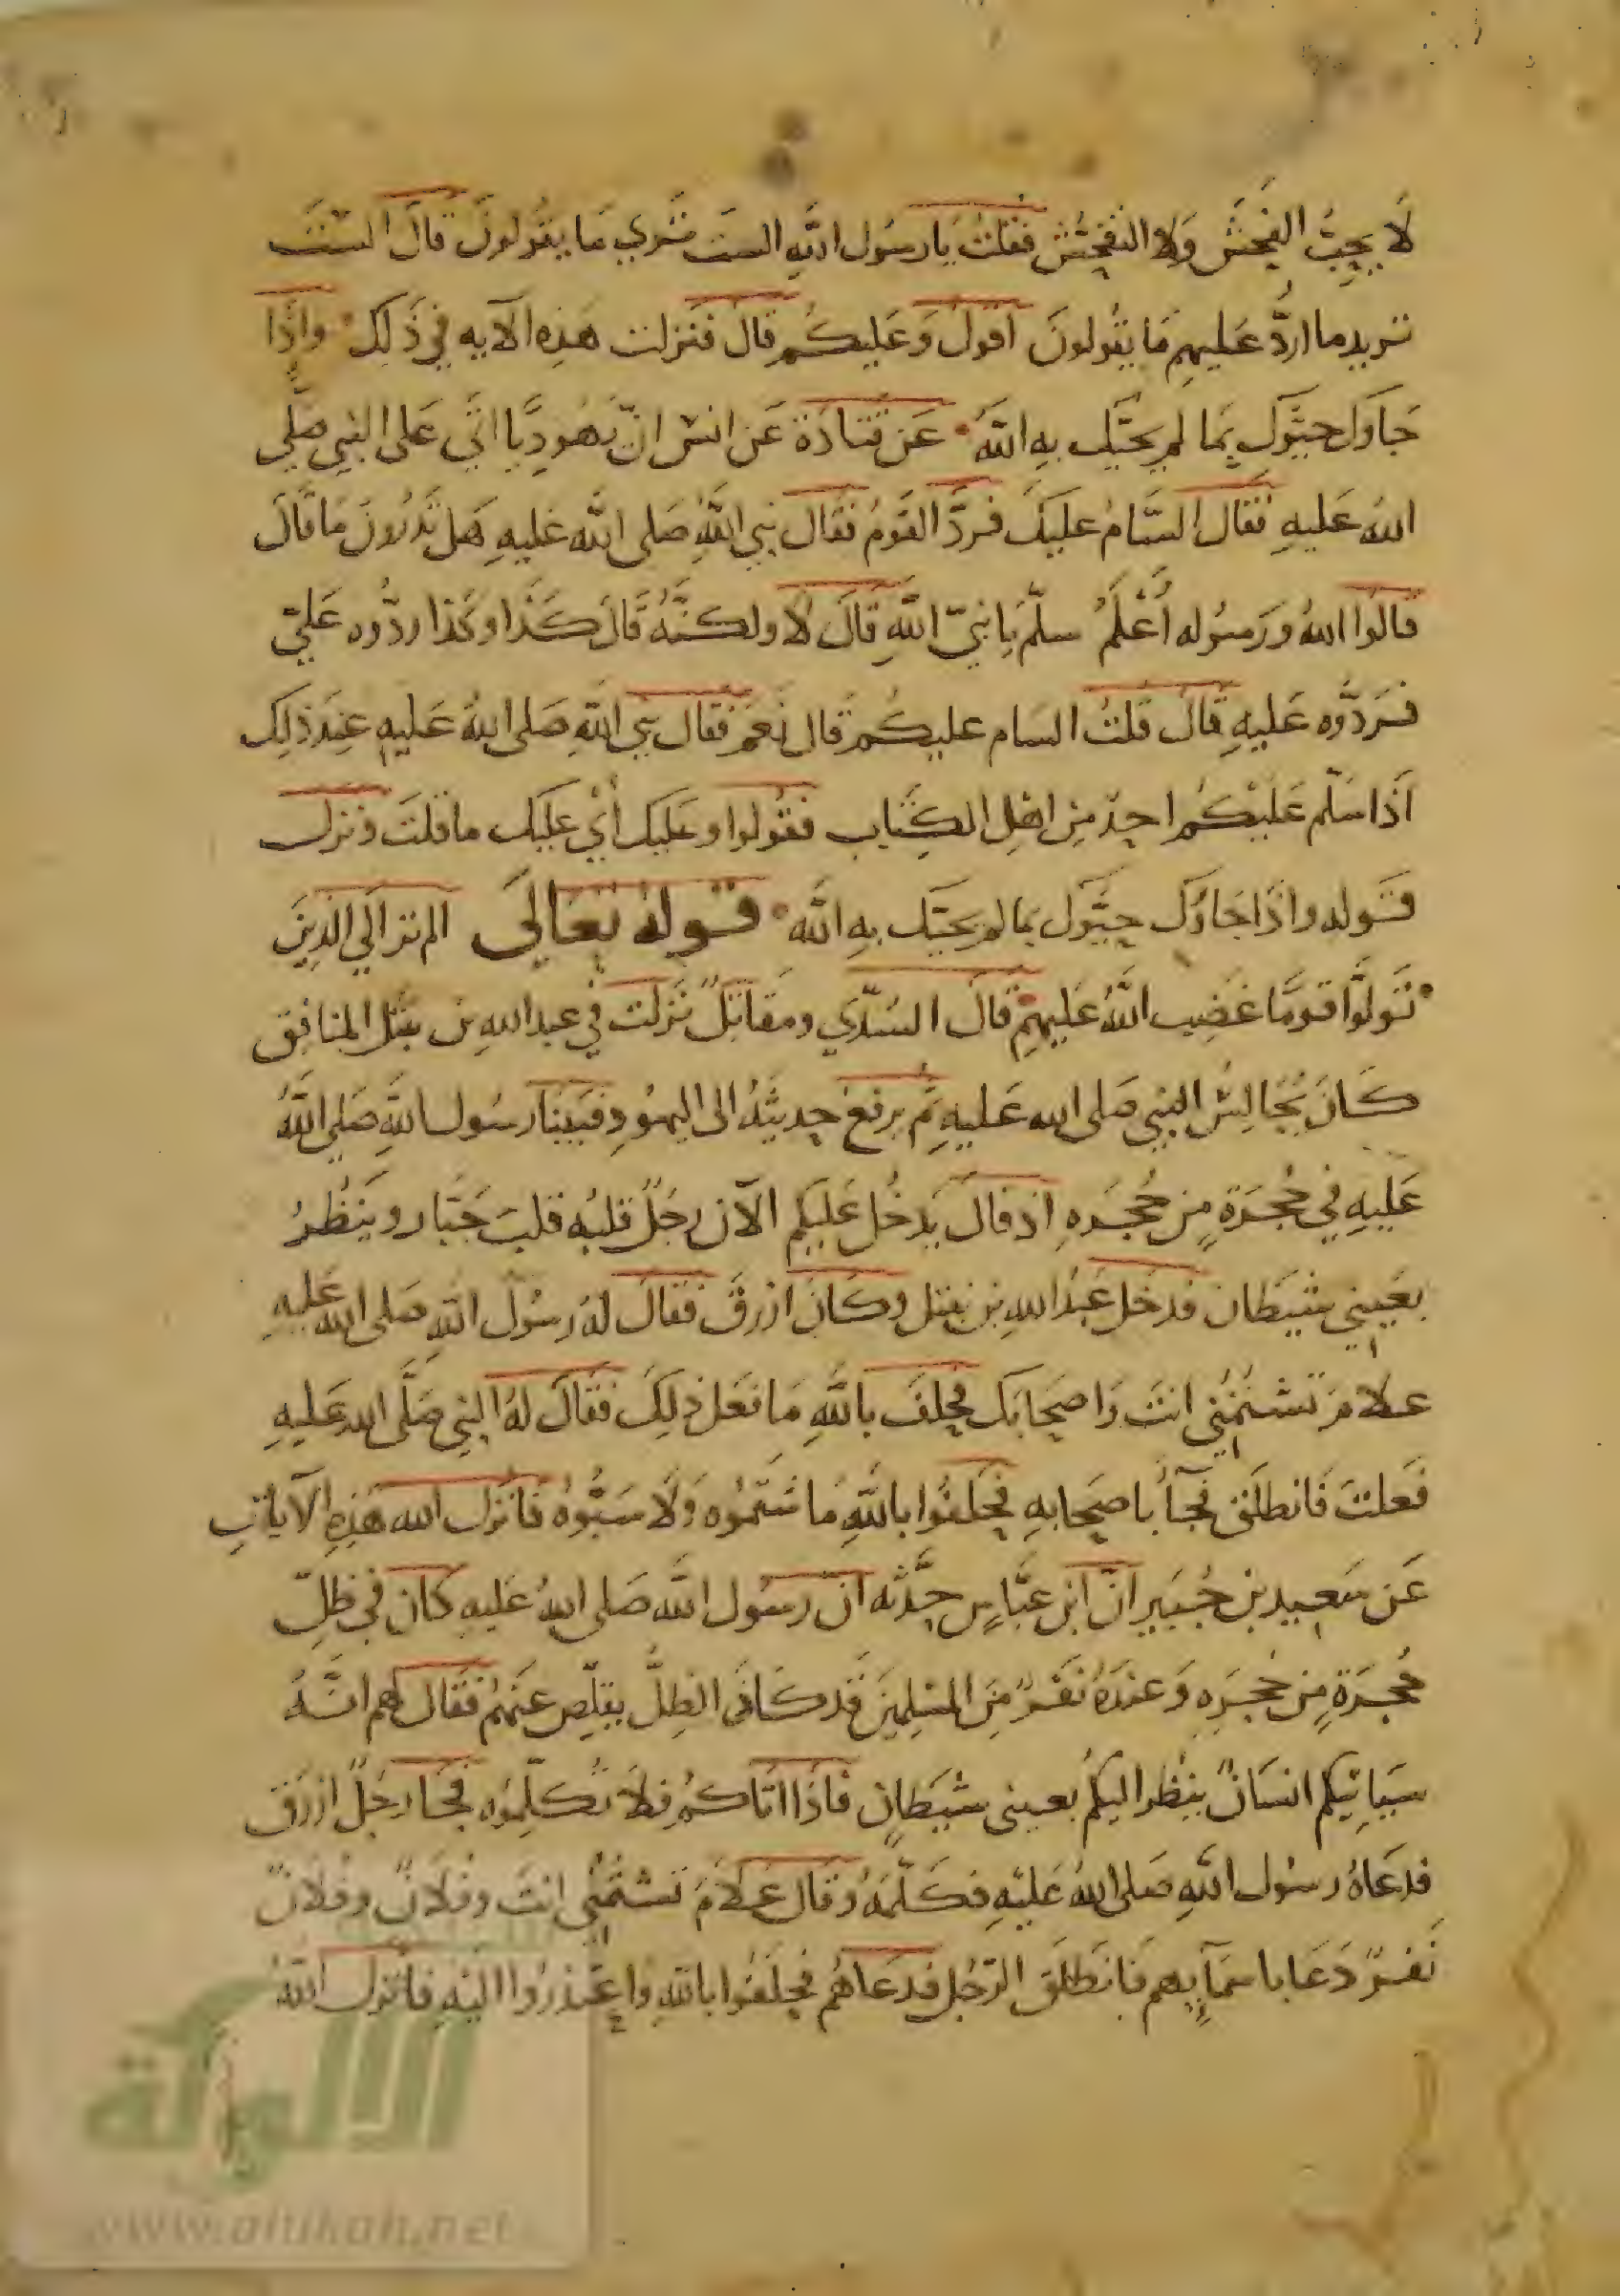 لَا يُحِبُّ الفُحْشَ وَلا التَفَحُّشَ فَقُلتُ يَا رسُول اللَّهِ الستَ تَرى مَا يقُولونَ قالَ الستَ
تريد ما اردُّ عَليهِم مَا يقُولونَ اقول وَعَليكُم قال فنزلت هَذِه الآيه في ذَلِك واذَا
جَاوك حيَّوك بمَا لم يحيّك بهِ اللَّهُ عَن قتَادَة عَن انس انّ يَهُودِيًا اتَى عَلى النبي صلَّى
اللهُ عَليهِ فَقَال السَّامُ عليكَ فردَّ القَومُ فقَال نبي اللَّهِ صَلى اللَّه عَليهِ هَل تَدرُونَ مَا قَالَ
قالوا اللهُ وَرَسُوله أعْلَمُ سلّمَ يا نبيّ اللَّهِ قالَ لا ولكنَّهُ قَالَ كَذا وكَذا ردُّوه عَليّ
فرَدُّوه عَليهِ قالَ قلتُ السَام عليكُم قال نعَم فقَال نبي اللَّهِ صَلى اللهُ عَليهِ عِندَ ذلِك
اذَا سَلّم عَلَيْكُم احدٌ مِن اهْلِ الكِتَابِ فقُولوا وعَليك أيْ عليك ما قلتَ ونزل
قَوله واذَا جَاؤك حيَّوك بما لم يحيّك بهِ اللَّه قَوله تعَالَى الم تر الَي الذِينَ
تَولَّوا قومًا غضِبَ اللَّهُ عَليهِم قَالَ السُدّي ومقَاتلٌ نَزلت في عبد اللهِ بن نبتل المنافق
كَانَ يُجَالِسُ النبي صَلى الله عَليهِ ثم يرفعُ حديثَهُ الى اليهُودِ فبَينَا رسُول اللَّهِ صَلى اللَّهُ
عَليهِ في حُجرَةٍ مِن حُجَرهِ اذ قالَ يَدخُل عَليكم الآن رجَلٌ قلبُه قلبَ جَبَّار وينظُرُ
بعَيني شيطَان فدخَل عَبدُ اللهِ بن نبتل وكَانَ ازرقَ فقالَ لهُ رسُول اللهِ صَلى الله عَليهِ
علامَ تَشتمُني انتَ وَاصحَابك فحلفَ باللَّهِ مَا فعَل ذلِكَ فقَالَ لهُ النبي صَلَّى الله عَليهِ
فَعلتَ فَانطلَقَ فجَآأ باصحَابهِ فحَلفُوا باللَّهِ مَا شَتمُوه وَلا سَبُّوهُ فانزل الله هَذِهِ الآيات
عَن سَعِيد بن جُبَير انّ ابن عبَّاسٍ حدَّثه انّ رسُول اللَّه صَلى اللهُ عَليهِ كان في ظلِّ
حُجرَةٍ مِن حُجَرِه وَعندَهُ نَفَرٌ مِنَ المسْلِمينَ قَد كَانَ الظِلُّ يقلّص عنهُم فقَال لهم انَّهُ
سَيَاتيكم انسَانٌ ينظُر اليكُم بعينى شيطَانٍ فاذَا اتَاكُم فلَا تُكَلّمُوه فجَآ رجُلٌ ازرَق
فدعَاهُ رسُول اللَّهِ صَلى اللهُ عَليْهِ فكَلّمَهُ وقَال عَلامَ تشتمُني انتَ وفلَانٌ وفُلَانٌ
نَفرٌ دَعَا باسمَآيِهم فَانطَلقَ الرّجُل فدعَاهُم فحلَفُوا باللهِ واعتَذرُوا اليْهِ فانزل اللهُ
الألوكة
www.alukah.net